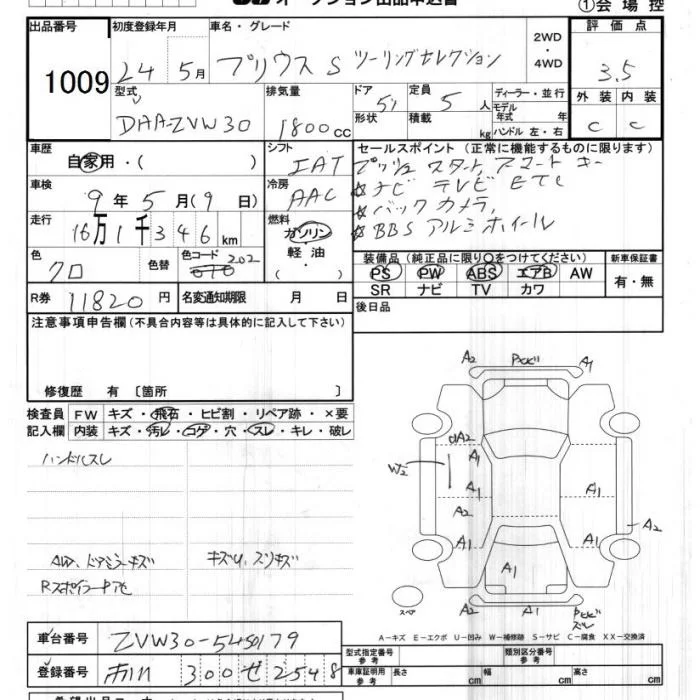 オークション出品申込書
①会場控
出品番号 1009
初度登録年月 24年 5月
車名・グレード プリウス S ツーリングセレクション
2WD・4WD
評価点 3.5
型式 DAA-ZVW30
排気量 1800cc
ドア 5
形状
定員 5人
積載 kg
ディーラー・並行
モデル年式 年
ハンドル 左・右
外装 C
内装 C
車歴 自家用・( )
シフト IAT
セールスポイント(正常に機能するものに限ります)
プッシュ スタート, スマート キー
☆ナビ テレビ ETC
☆バックカメラ,
☆BBS アルミホイール
車検 9年5月(9日)
冷房 AAC
走行 16万1千346km
燃料 ガソリン 軽油 ( )
色 クロ
色替
色コード 202
装備品(純正品に限り○をつけてください)
PS PW ABS エアB AW
SR ナビ TV カワ
新車保証書 有・無
R券 11820円
名変通知期限 月 日
後日品
注意事項申告欄(不具合内容等は具体的に記入して下さい)
修復歴 有〔箇所 〕
検査員記入欄
FW キズ・飛石・ヒビ割・リペア跡・×要
内装 キズ・汚レ・コゲ・穴・スレ・キレ・破レ
ハンドルスレ
AW、ドアミラーキズ
キズU、スリキズ
A2 A1
UA2
A1
W2
A1 A1
A2
A1 A1
A2
A1
A2 A1
スペア
A-キズ E-エクボ U-凹み W-補修跡 S-サビ C-腐食 XX-交換済
車台番号 ZVW30-5450179
登録番号 300 せ 2548
型式指定番号 参考
類別区分番号 参考
車庫証明用 参考 長さ cm 幅 cm 高さ cm